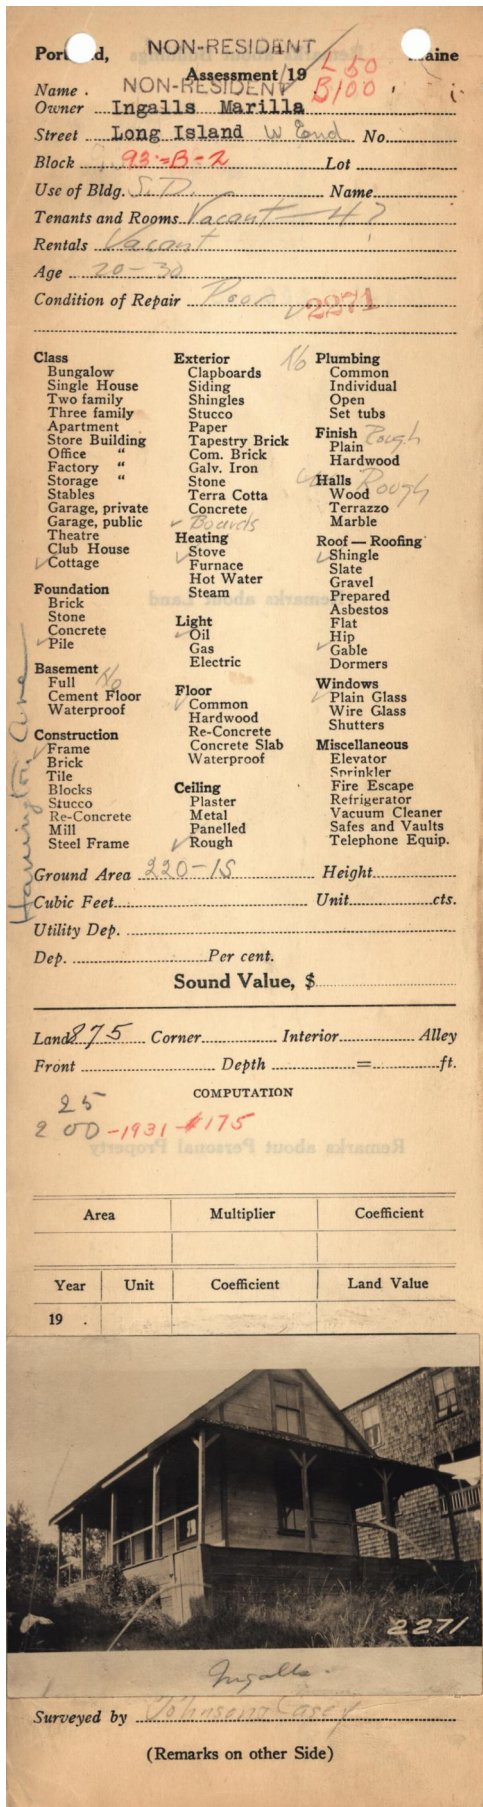 NON-RESIDENT
Portland, Maine
Assessment 19 L 50
NON-RESIDENT B 100
Name
Owner Ingalls Marilla
Street Long Island W End No.
Block 93-B-2 Lot
Use of Bldg. S.D. Name
Tenants and Rooms Vacant - 4?
Rentals Vacant
Age 20-30
Condition of Repair Poor 2271
Class
Bungalow
Single House
Two family
Three family
Apartment
Store Building
Office "
Factory "
Storage "
Stables
Garage, private
Garage, public
Theatre
Club House
✓ Cottage
Foundation
Brick
Stone
Concrete
✓ Pile
Basement No
Full
Cement Floor
Waterproof
Construction
✓ Frame
Brick
Tile
Blocks
Stucco
Re-Concrete
Mill
Steel Frame
Exterior
Clapboards
Siding
Shingles
Stucco
Paper
Tapestry Brick
Com. Brick
Galv. Iron
Stone
Terra Cotta
Concrete
✓ Boards
Heating
✓ Stove
Furnace
Hot Water
Steam
Light
✓ Oil
Gas
Electric
Floor
✓ Common
Hardwood
Re-Concrete
Concrete Slab
Waterproof
Ceiling
Plaster
Metal
Panelled
✓ Rough
No Plumbing
Common
Individual
Open
Set tubs
Finish Rough
Plain
Hardwood
Halls Rough
Wood
Terrazzo
Marble
Roof — Roofing
✓ Shingle
Slate
Gravel
Prepared
Asbestos
Flat
Hip
✓ Gable
Dormers
Windows
✓ Plain Glass
Wire Glass
Shutters
Miscellaneous
Elevator
Sprinkler
Fire Escape
Refrigerator
Vacuum Cleaner
Safes and Vaults
Telephone Equip.
Harrington Ave
Ground Area 220-1S Height
Cubic Feet Unit cts.
Utility Dep.
Dep. Per cent.
Sound Value, $
Land 875 Corner Interior Alley
Front Depth = ft.
COMPUTATION
25
200 -1931 - $175
Area Multiplier Coefficient
Year Unit Coefficient Land Value
19 .
2271
Ingalls.
Surveyed by Johnson Casey
(Remarks on other Side)